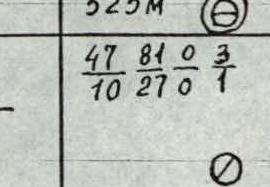 525М ⊖
47/10 81/27 0/0 3/1